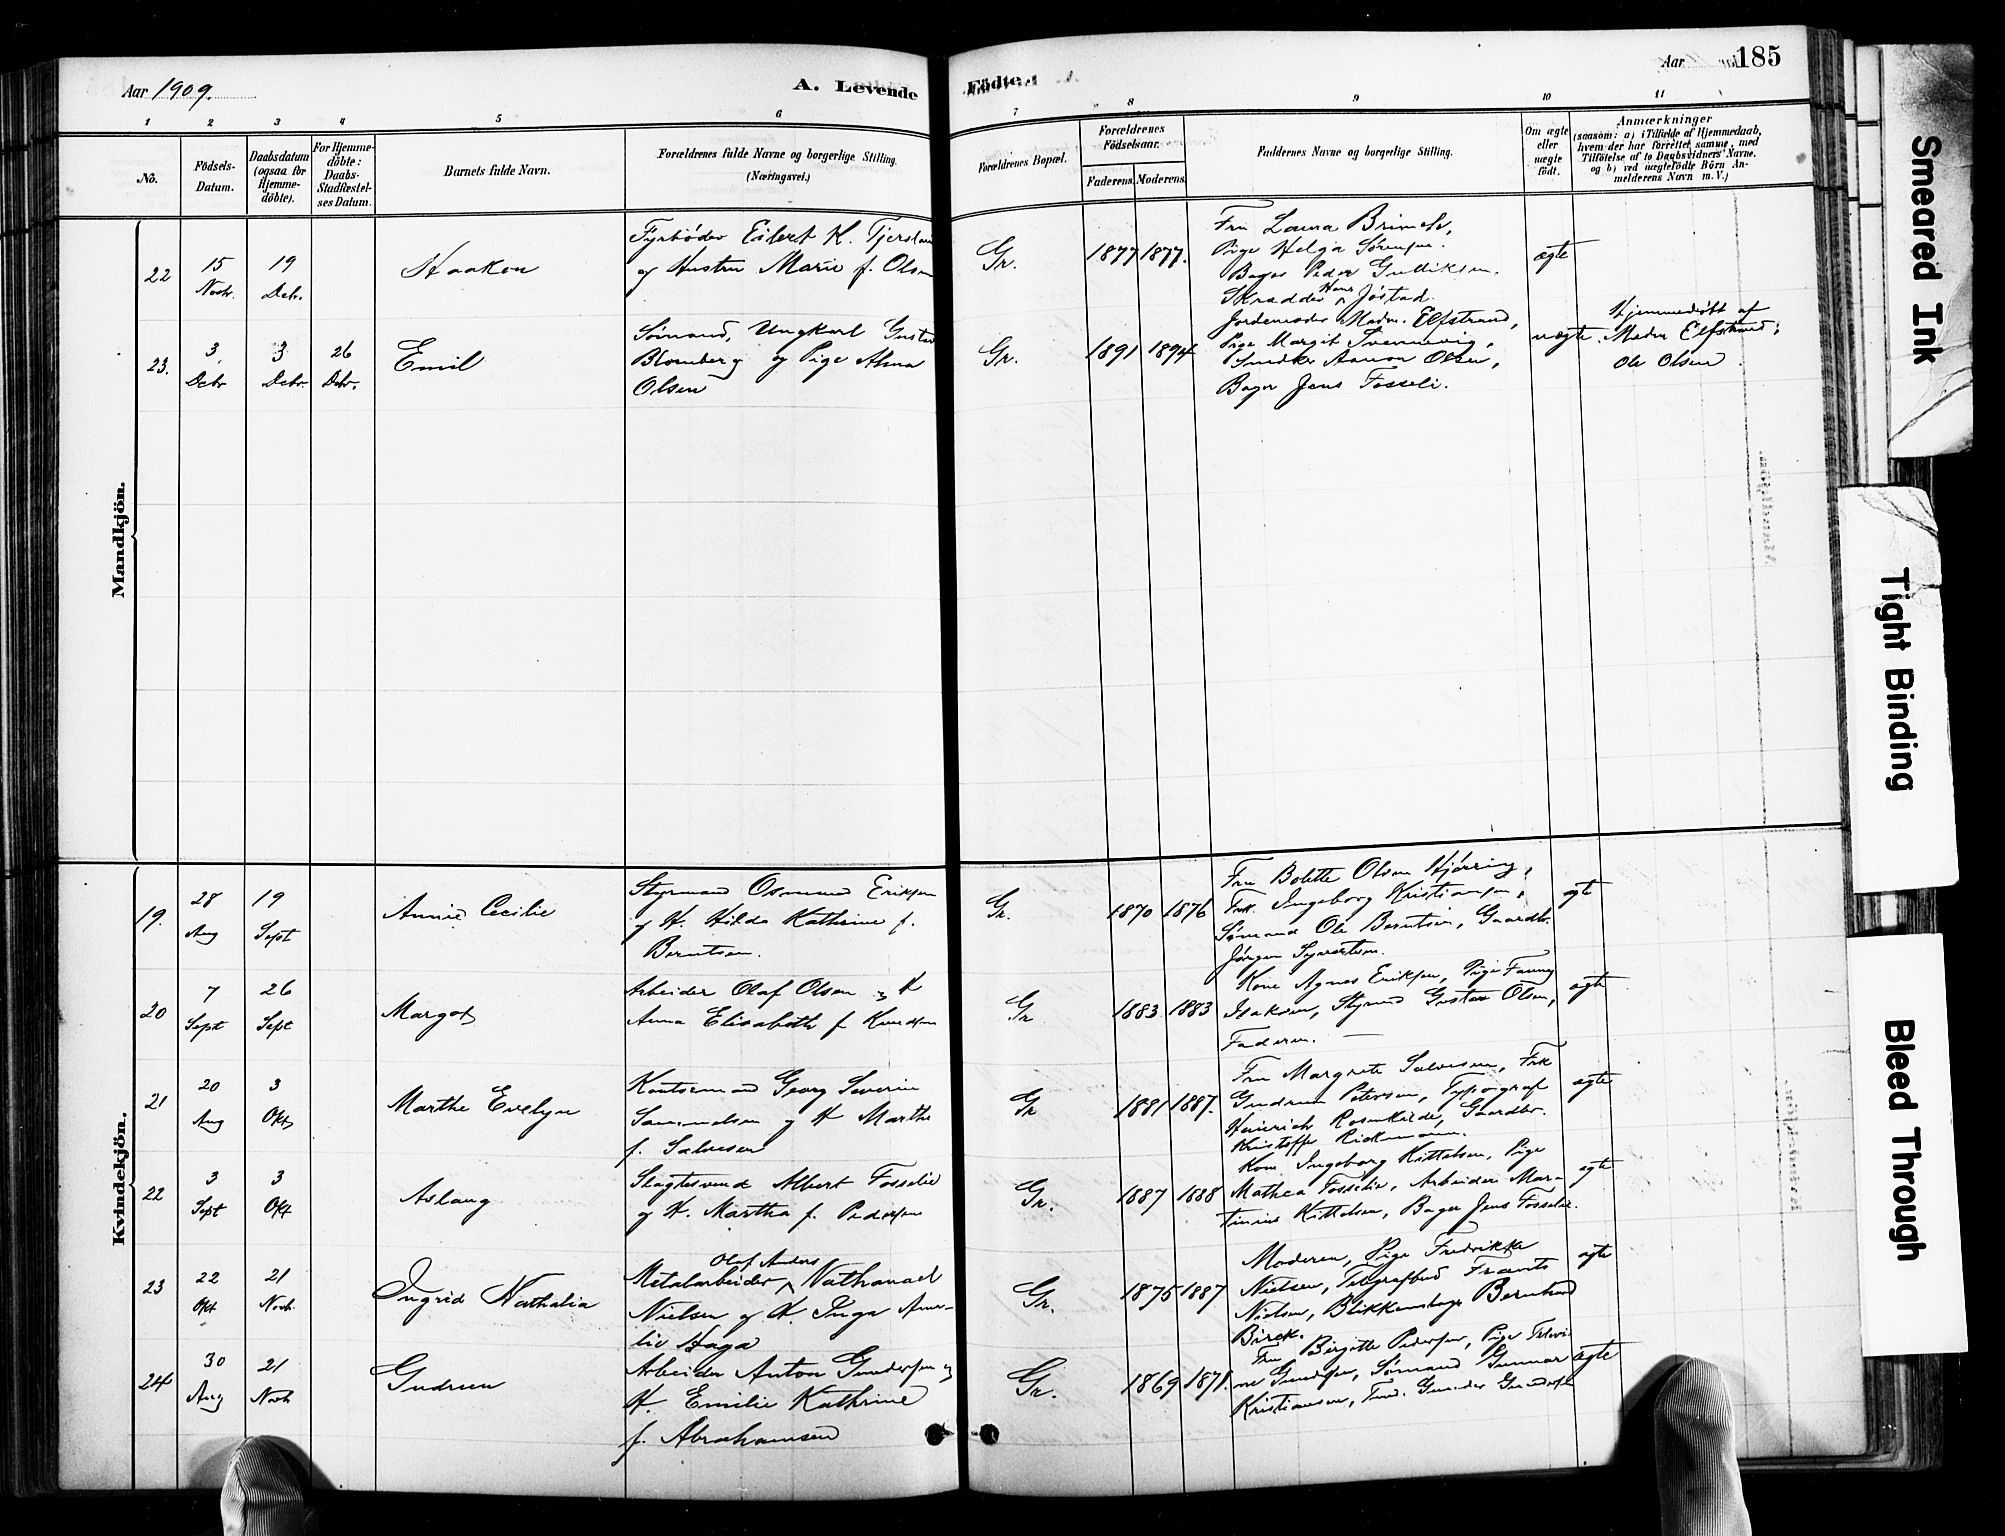 Aar 1909.
A. Levende
Födte.
Aar
185
1 2 3 4 5 6 7 8 9 10 11
No.
Födsels-
Datum.
Daabsdatum
(ogsaa for
Hjemme-
döbte).
For Hjemme-
döbte:
Daabs-
Stadfæstel-
ses Datum.
Barnets fulde Navn.
Forældrenes fulde Navne og borgerlige Stilling.
(Næringsvei.)
Forældrenes Bopæl.
Forældrenes
Födselsaar.
Faderens. Moderens.
Faddernes Navne og borgerlige Stilling.
Om ægte
eller
uægte
födt.
Anmærkninger
(saasom: a) i Tilfælde af Hjemmedaab,
hvem der har forrettet samme, med
Tilföielse af to Daabsvidners Navne,
og b) ved uægtefödte Börn An-
melderens Navn m. V.)
Mandkjön.
22
15
Novb.
19
Deb.
Haakon
Fyrbøder Eilert K. Tjersland
og Hustru Marie f. Olsen
Gr.
1877 1877.
Fru Laura Brinch,
Pige Helga Sørensen.
Bager Peder Gulliksen.
Skrædder Hans Jøstad.
ægte
23.
3
Decbr
3
Decbr.
26
Decbr.
Emil
Sømand, Ungkarl Gustav
Blomberg og Pige Alma
Olsen
Gr.
1891 1894
Jordemoder Madm. Elfstrand,
Pige Margit Svennevig,
Snedker Aanon Olsen,
Bager Jens Fosseli.
uægte.
Hjemmedøbt af
Madm Elfstrand;
Ole Olsen.
Kvindekjön.
19.
28
Aug
19
Sept
Annie Cecilie
Styrmand Osmund Eriksen
og H. Hilda Kathrine f.
Berntsen.
Gr.
1870 1876
Fru Bolette Olsen Hjørring,
Frk. Ingeborg Kristiansen,
Sømand Ole Berntsen, Gaardbr.
Jørgen Syvertsen.
ægte
20
7
Sept
26
Sept
Margot
Arbeider Olaf Olsen og H
Anna Elisabeth f Knudsen
Gr
1883 1883
Kone Agnes Eriksen, Pige Fanny
Isaksen, Styrmd Gustav Olsen,
Faderen.
ægte
21
20
Aug
3
Okt
Marthe Evelyn
Kontormand Georg Severin
Sammelsen og H Marthe
f. Salvesen
Gr
1881 1887.
Fru Margrete Salvesen, Frk
Gudrun Petersen, Typograf
Heinrich Rosenkilde, Gaardbr.
Kristoffer Rickmann.
ægte
22
3
Sept
3
Okt
Aslaug
Slagtersvend Albert Fosselie
og H. Martha f. Pedersen
Gr.
1887 1888
Kone Ingeborg Kittelsen, Pige
Mathea Fosselie, Arbeider Mar-
tinius Kittelsen, Bager Jens Fosselie.
ægte
23
22
Okt
21
Novb.
Ingrid Nathalia
Olaf Anders
Metalarbeider Nathanael
Nielsen og H. Inga Ame-
lie Haga
Gr.
1875 1887
Moderen, Pige Fredrikke
Nielsen, Telegrafbud Frants
Nielsen, Blikkenslager Bernhard
Birck.
ægte
24
30
Aug
21
Novb
Gudrun
Arbeider Anton Gundersen og
H. Emilie Kathrine
f. Abrahamsen
Gr.
1869 1871.
Fru Birgitte Pedersen, Pige
ne Gundersen, Sømand Gunnar
Kristiansen, Gunder Gundersen
ægte
Smeared Ink
Tight Binding
Bleed Through